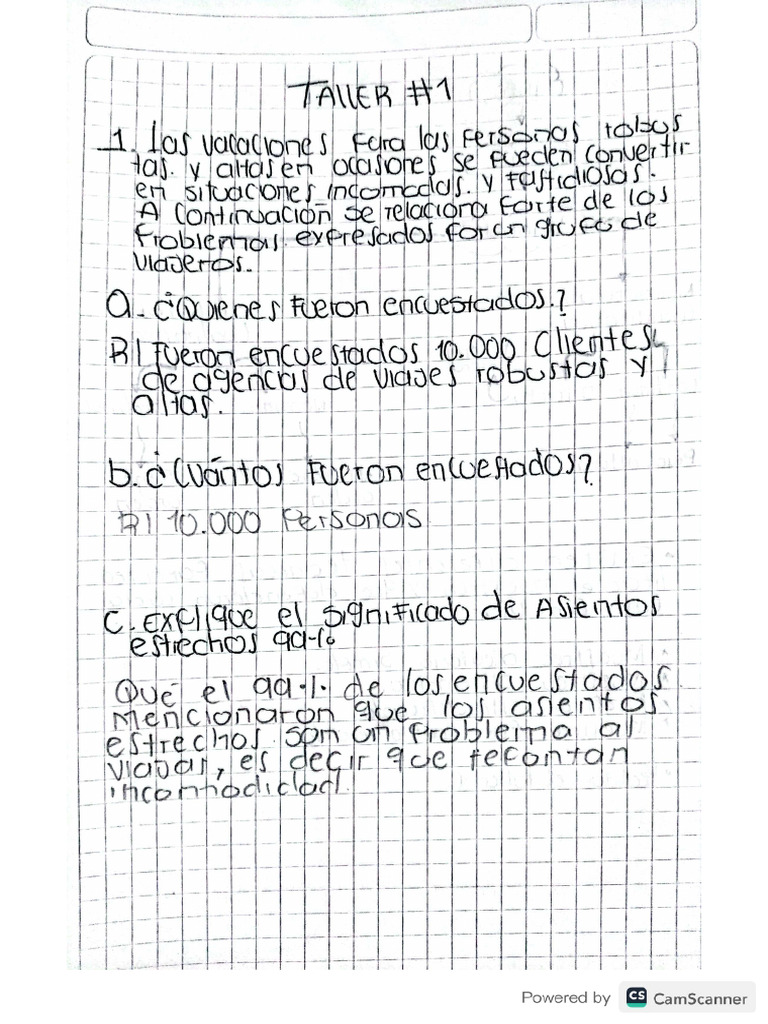 TALLER #1
1. Las vacaciones para las personas robus
tas. y altas en ocasiones se pueden convertir
en situaciones incomodas. y fastidiosas.
A continuación se relaciona parte de los
problemas expresados por un grupo de
viajeros.
a. ¿Quienes fueron encuestados.?
R/ Fueron encuestados 10.000 Clientes
de agencias de viajes robustas y
altas.
b. ¿Cuántos fueron encuestados?
R/ 10.000 Personas
C. Explique el significado de Asientos
estrechos 99%
Qué el 99% de los encuestados
mencionaron que los asientos
estrechos son un problema al
viajar, es decir que reportan
incomodidad.
Powered by CS CamScanner